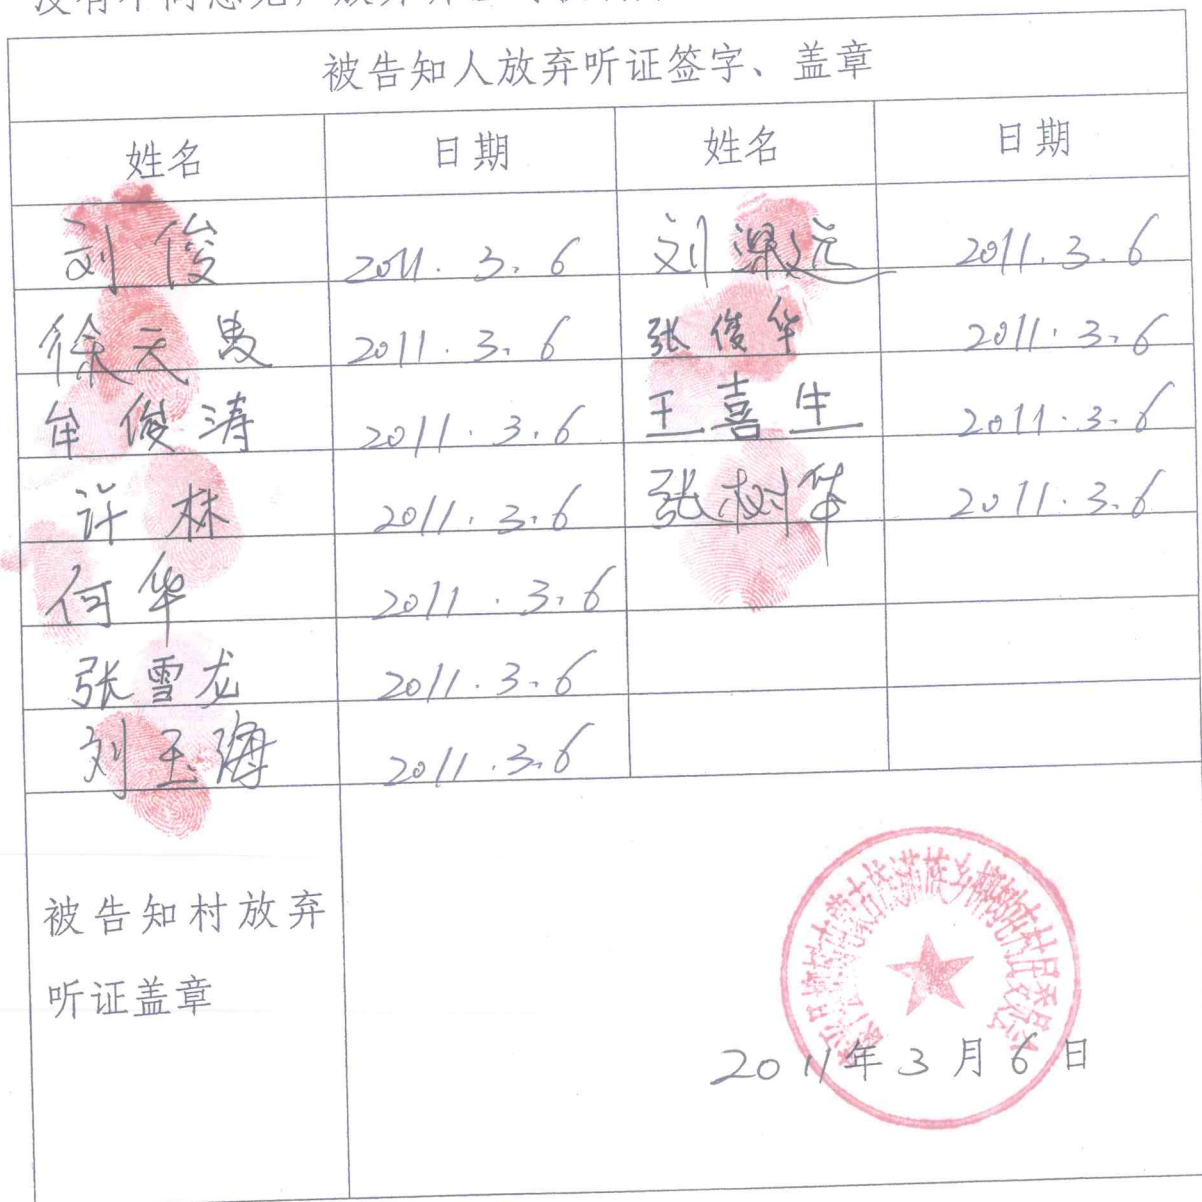 被告知人放弃听证签字、盖章
姓名 日期 姓名 日期
刘俊 2011.3.6 刘深远 2011.3.6
徐云 2011.3.6 张俊华 2011.3.6
牟俊涛 2011.3.6 王喜生 2011.3.6
许林 2011.3.6 张树华 2011.3.6
何华 2011.3.6
张雪龙 2011.3.6
刘玉海 2011.3.6
被告知村放弃
听证盖章
2011年3月6日